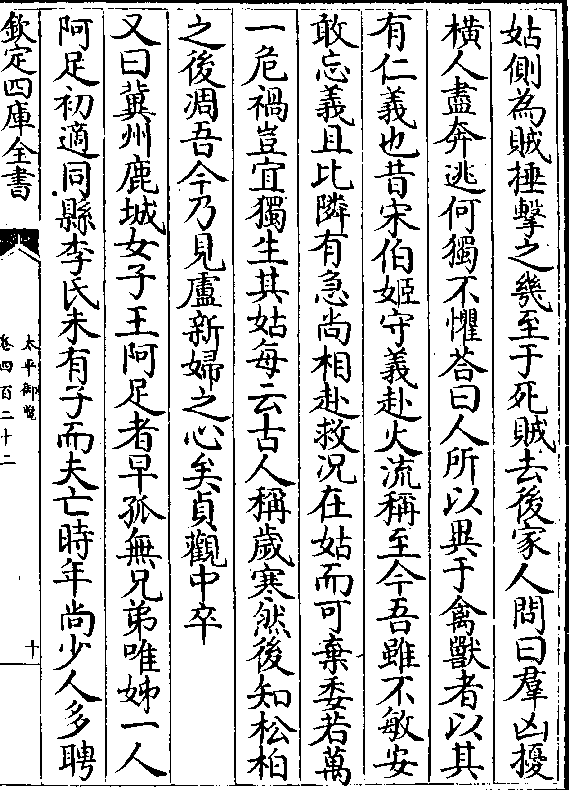 姑側為賊捶擊之幾至于死賊去後家人問曰羣凶擾
橫人盡奔逃何獨不懼荅曰人所以異于禽獸者以其
有仁義也昔宋伯姬守義赴火流稱至今吾雖不敏安
敢忘義且比隣有急尚相赴救况在姑而可棄委若萬
一危禍豈宜獨生其姑每云古人稱歲寒然後知松柏
之後凋吾今乃見盧新婦之心矣貞觀中卒
又曰冀州鹿城女子王阿足者早孤無兄弟唯姊一人
阿足初適同縣李氏未有子而夫亡時年尚少人多聘
欽定四庫全書
太平御覽
卷四百二十二
十